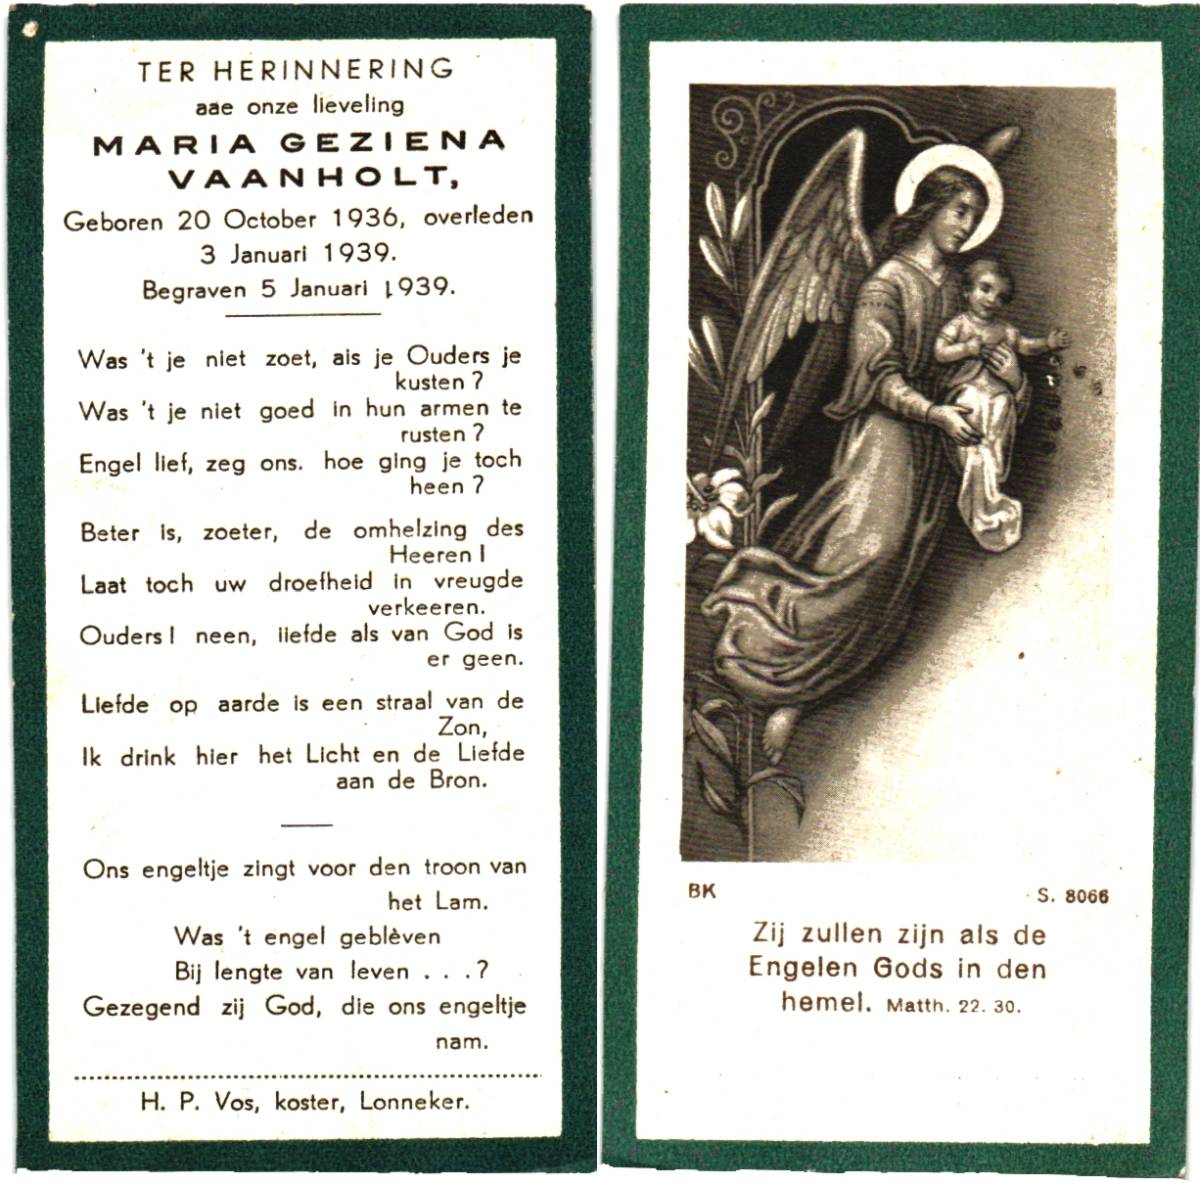 TER HERINNERING
aae onze lieveling
MARIA GEZIENA
VAANHOLT,
Geboren 20 October 1936, overleden
3 Januari 1939.
Begraven 5 Januari 1939.
Was 't je niet zoet, als je Ouders je
kusten ?
Was 't je niet goed in hun armen te
rusten ?
Engel lief, zeg ons. hoe ging je toch
heen ?
Beter is, zoeter, de omhelzing des
Heeren !
Laat toch uw droefheid in vreugde
verkeeren.
Ouders ! neen, liefde als van God is
er geen.
Liefde op aarde is een straal van de
Zon,
Ik drink hier het Licht en de Liefde
aan de Bron.
Ons engeltje zingt voor den troon van
het Lam.
Was 't engel geblèven
Bij lengte van leven . . . ?
Gezegend zij God, die ons engeltje
nam.
H. P. Vos, koster, Lonneker.
BK
S. 8066
Zij zullen zijn als de
Engelen Gods in den
hemel. Matth. 22. 30.